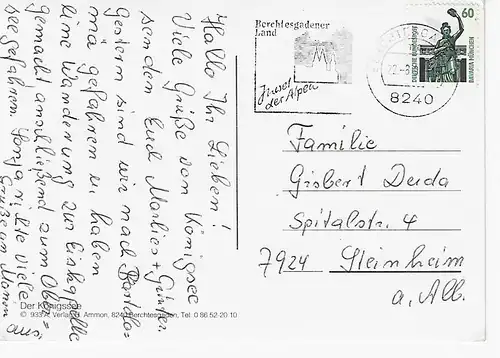 Hallo Ihr Lieben!
Viele Grüße vom Königsee
senden Euch Marlies + Günter
Gestern sind wir nach Bartolo=
mä gefahren u. haben
eine Wanderung zur Eiskapelle
gemacht anschließend zum Ober=
see gefahren. Sonja richte viele
Grüße an Maren
aus.
Der Königssee
© 933 A, Verlag B. Ammon, 8240 Berchtesgaden, Tel. 0 86 52-20 10
Berchtesgadener
Land
Insel
der Alpen
8240
60
DEUTSCHE BUNDESPOST
BAVARIA MÜNCHEN
Familie
Gisbert Duda
Spitalstr. 4
7924 Steinheim
a. Alb.